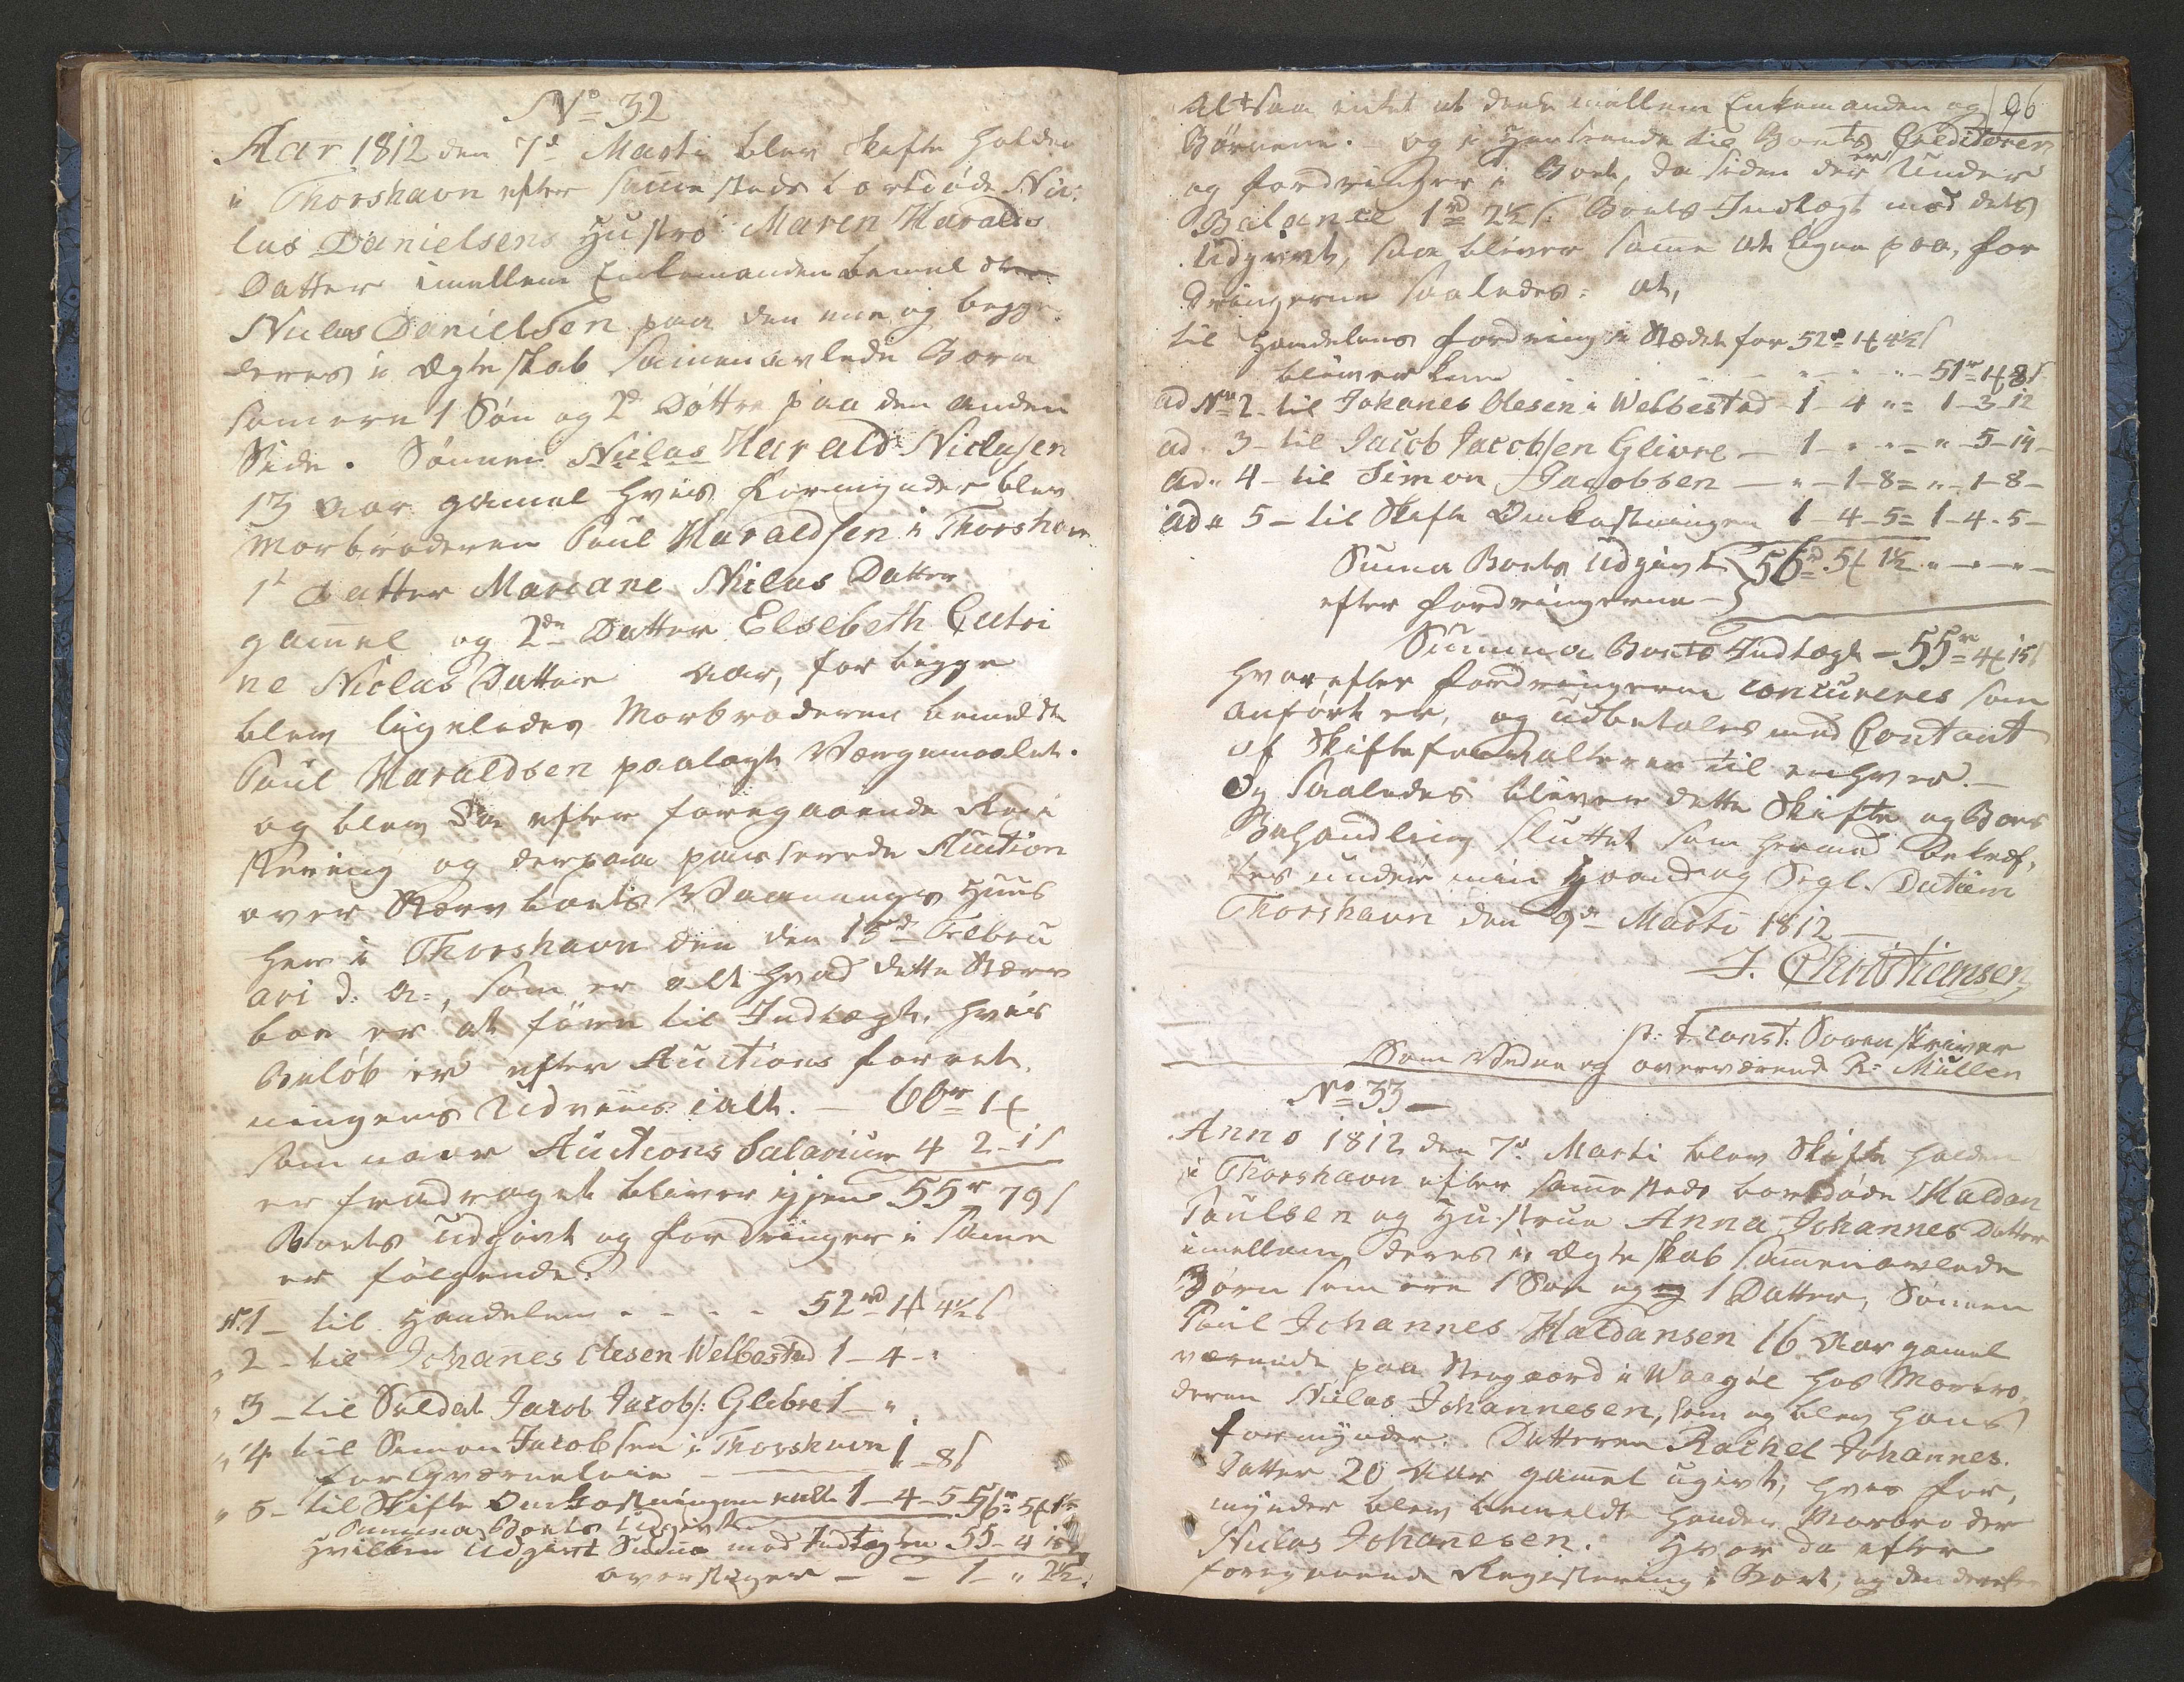 No 32
Aar 1812 den 7d Marti blev Skifte holden
i Thorshavn efter samme steds bortdøde Nic:
las Danielsens Hustro Maren Haralds
Datter imellem Enkemanden bemel dte
Niclas Danielsen paa den ene og begge
deres i Ægteskab sammenavlede Børn
som ere 1 Søn og 2de Døttre paa den anden
Side. Sønnen Niclas Harald Niclasen
13 aar gamel hvis Formynder blev
Morbroderen Poul Haraldsen i Thorshavn
1te Datter Mariane Niclas Datter
gammel og 2den Datter Elsebeth Catri
ne Niclas Datter aar, for begge
blev ligeledes Morbroderen bemeldte
Poul Haraldsen paalagtVærgemaalet.
og blev da efter foregaaende Regi
strering og derpaa passerede Auction
over Stervboets Vaanings Huus
her i Thorshavn den den 15de Febru
ari d: A:, som er alt hvad dette Sterv
boe er at føre til Indtægt, hvis
Beløb er efter Auctions forret,
ningens Udviis ialt. — 60r 1
som naar Auctions Salarium 4 2 - 1 s
er fradraget bliver igjen 55r 79 s
Boets Udgivt og Fordringer i samme
er følgende:
N. 1 _ til Handelen - - - - 52rd 1 4½ s
" 2 - til Johanes Olesen Welbestad 1 - 4 -
" 3 - til Soldat Jacob Jacobs: Glibre 1 - "
" 4 til Simon Jacobsen i Thorshavn 1 - 8 s
for
" 5 - til Skifte Omkostningen ialt 1 - 4 - 5 56r 5 1½
Summa Boets Udgivt
hvilken Udgivt Summa med Indtægten 55 - 4 15
overstiger - - 1 - " 2½.
96
Altsaa intet at dele mellem Enkemanden og
Børnene. og i Henseende til Boets Creditorer
og fordringer i Boet, da siden der er Under
Balance 1rd 2½ s. Boets Indtægt mod dets
Udgivt, saa bliver samme at ligne paa, for
dringerne saaledes: at,
til Handelens fordring i Stedet for 52r 1 4½ s
bliver kun - - - - 51r 1 8 s
ad No 2 - til Johanes Olesen i Welbestad - 1 - 4 " = 1 - 3 - 12
ad " 3 - til Jacob Jacobsen Glivre - 1 - " - " - = " - 5 - 14 -
ad " 4 - til Simon Jacobsen - " - 1 - 8 = " - 1 - 8 -
ad " 5 - til Skifte Omkostningen 1 - 4 - 5 = 1 - 4 - 5 -
Suma Boets Udgivt 56rd 5 1½ " - " - " -
efter fordringerne -
Summa Boets Indtægt - 55r 4 15 s
hvorefter fordringerne concureres som
anført er, og udbetales med Contant
af Skifteforvalteren til enhver. -
Og saaledes bliver dette Skifte og Boes
Behandling sluttet som hermed bekræf,
tes under min Haand og Segl. Datum
Thorshavn den 9de Marti 1812 -
J. Christiansen
p: t. const: Sorenskriver
Som Vidne og overværende R: Müller
No 33 -
Anno 1812 den 7d Marti blev Skifte holden
i Thorshavn efter samme steds bortdøde Haldan
Poulsen og Hustrue Anna Johannes Datter
imellem deres i Ægteskab sammenavlede
Børn som ere 1 Søn og og 1 Datter, Sønnen
Poul Johannes Haldansen 16 Aar gamel
værende paa i Waagøe hos Morbro,
deren Niclas Johannesen, som og blev hans
formynder. Datteren Rachel Johannes.
Datter 20 Aar gamel ugivt, hvis for,
mynder blev bemeldte hendes Morbroder
Niclas Johanesen. Hvor da efter
foregaaende Registering i Boet, og den derefter